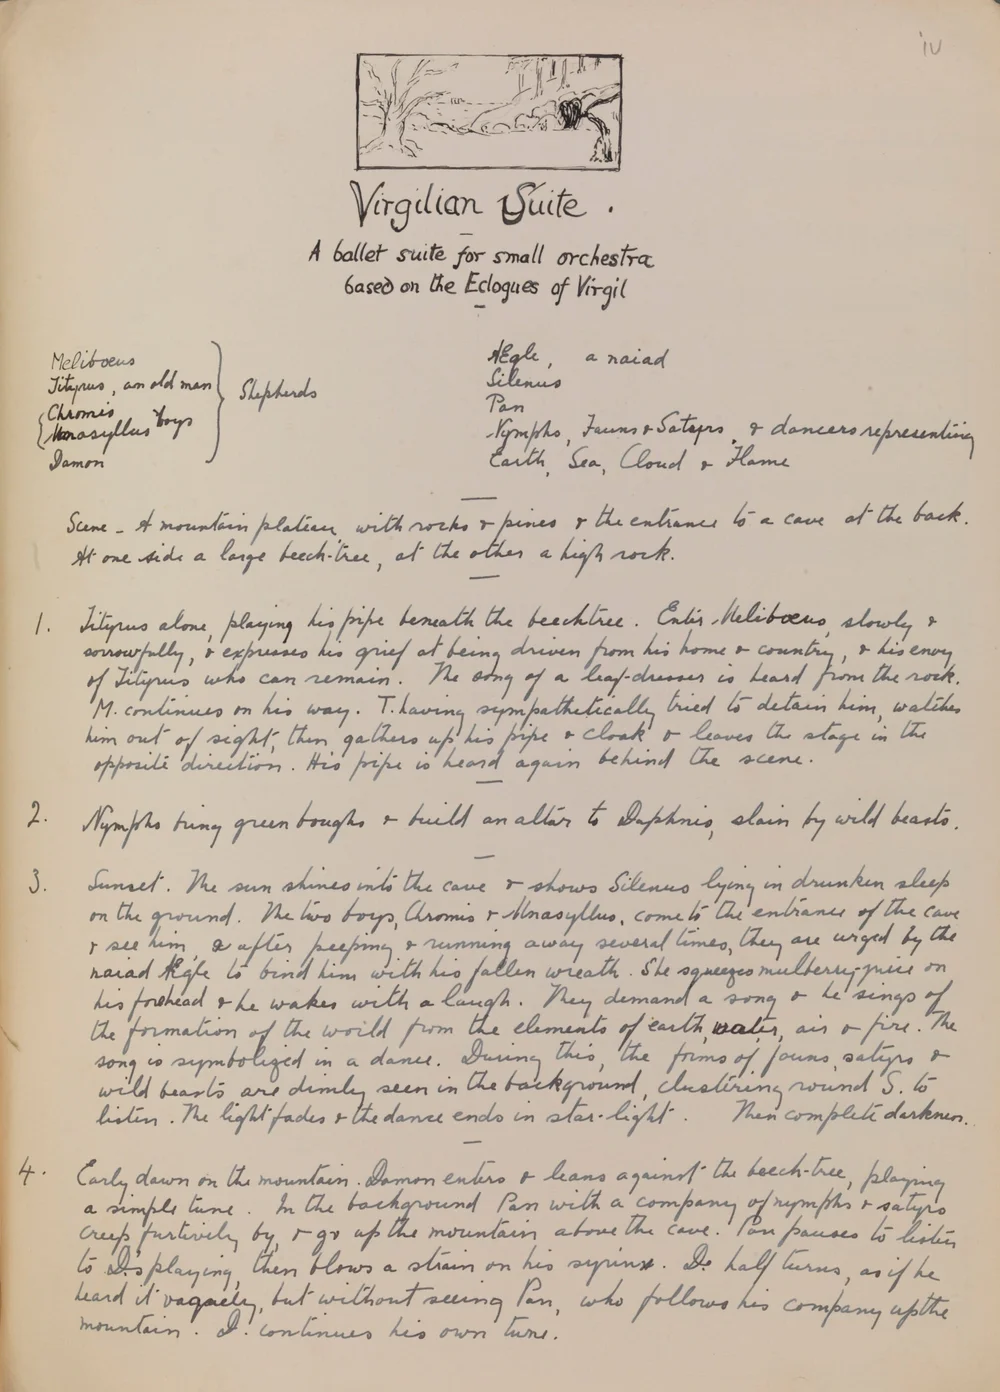 iv
Virgilian Suite.
A ballet suite for small orchestra
based on the Eclogues of Virgil
Meliboeus
Tityrus, an old man
Chromis
Mnasyllus boys
Damon
Shepherds
Ægle, a naiad
Silenus
Pan
Nymphs, Fauns & Satyrs, & dancers representing
Earth, Sea, Cloud & Flame
Scene - A mountain plateau, with rocks & pines & the entrance to a cave at the back.
At one side a large beech-tree, at the other a high rock.
1. Tityrus alone, playing his pipe beneath the beechtree. Enter Meliboeus, slowly &
sorrowfully, & expresses his grief at being driven from his home & country, & his envy
of Tityrus who can remain. The song of a leaf-dresser is heard from the rock.
M. continues on his way. T. having sympathetically tried to detain him, watches
him out of sight, then gathers up his pipe & cloak & leaves the stage in the
opposite direction. His pipe is heard again behind the scene.
2. Nymphs bring green boughs & build an altar to Daphnis, slain by wild beasts.
3. Sunset. The sun shines into the cave & shows Silenus lying in drunken sleep
on the ground. The two boys, Chromis & Mnasyllus, come to the entrance of the cave
& see him, & after peeping & running away several times, they are urged by the
naiad Ægle to bind him with his fallen wreath. She squeezes mulberry-juice on
his forehead & he wakes with a laugh. They demand a song & he sings of
the formation of the world from the elements of earth, water, air & fire. The
song is symbolized in a dance. During this, the forms of fauns, satyrs &
wild beasts are dimly seen in the background, clustering round S. to
listen. The light fades & the dance ends in star-light. Then complete darkness.
4. Early dawn on the mountain. Damon enters & leans against the beech-tree, playing
a simple tune. In the background Pan with a company of nymphs & satyrs
creep furtively by, & go up the mountain above the cave. Pan pauses to listen
to D.'s playing, then blows a strain on his syrinx. D. half turns, as if he
heard it vaguely, but without seeing Pan, who follows his company up the
mountain. D. continues his own tune.